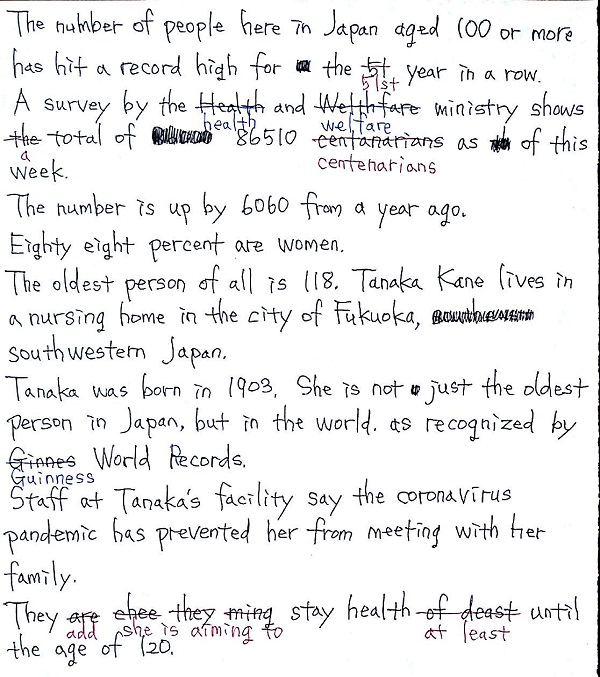 The number of people here in Japan aged 100 or more
has hit a record high for the 5t year in a row.
51st
A survey by the Health and Welthfare ministry shows
health welfare
the total of 86510 centanarians as of this
a centenarians
week.
The number is up by 6060 from a year ago.
Eighty eight percent are women.
The oldest person of all is 118. Tanaka Kane lives in
a nursing home in the city of Fukuoka,
southwestern Japan.
Tanaka was born in 1903. She is not just the oldest
person in Japan, but in the world. as recognized by
Ginnes World Records.
Guinness
Staff at Tanaka's facility say the coronavirus
pandemic has prevented her from meeting with her
family.
They are ehee they ming stay health of deast until
add she is aiming to at least
the age of 120.